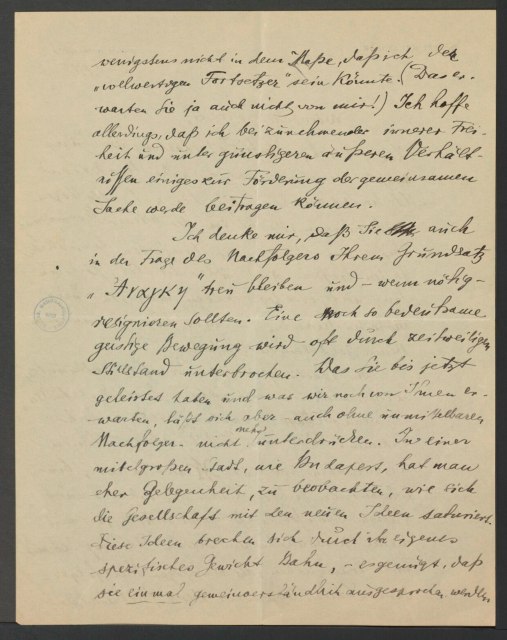 wenigstens nicht in dem Maße, daß ich der
„vollwertigen Fortsetzer" sein könnte. (Das er-
warten Sie ja auch nicht von mir!) Ich hoffe
allerdings, daß ich bei zunehmender innerer Frei-
heit und unter günstigeren äußeren Verhält-
nissen einiges zur Förderung der gemeinsamen
Sache werde beitragen können.
Ich denke mir, daß Sie auch
in der Frage des Nachfolgers Ihrem Grundsatz
„Αναγκη" treu bleiben und – wenn nötig –
resignieren sollten. Eine noch so bedeutsame
geistige Bewegung wird oft durch zeitweiligen
Stillstand unterbrochen. Das Sie bis jetzt
geleistet haben und was wir noch von Ihnen er-
warten, läßt sich aber – auch ohne unmittelbaren
Nachfolger – nicht mehr unterdrücken. In einer
mittelgroßen Stadt, wie Budapest, hat man
eher Gelegenheit, zu beobachten, wie sich
die Gesellschaft mit den neuen Ideen saturiert.
Diese Ideen brechen sich durch ihr eigenes
spezifisches Gewicht Bahn, – es genügt, daß
sie einmal gemeinverständlich ausgesprochen werden